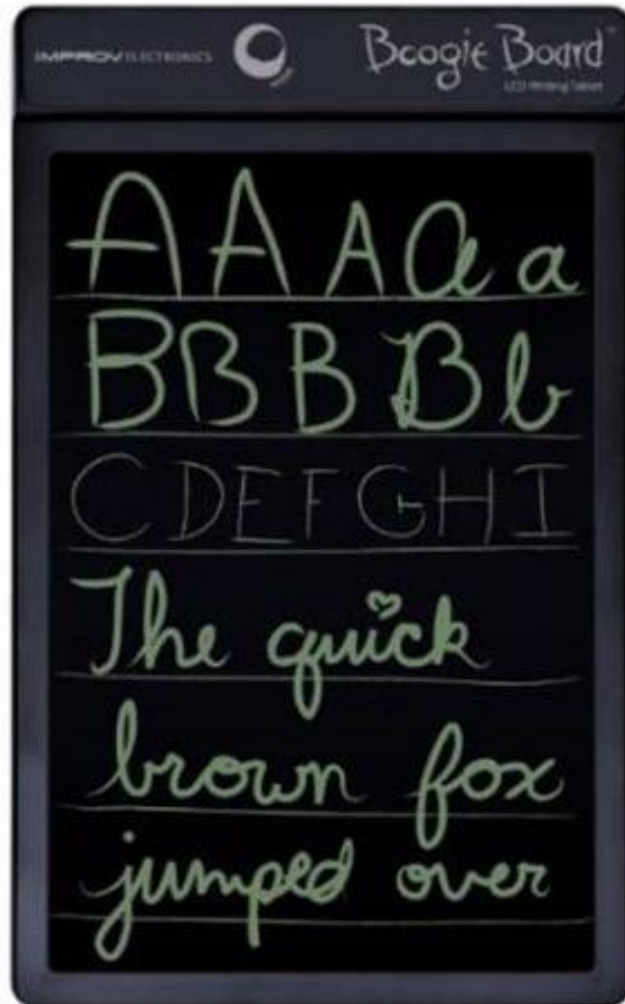 IMPROV ELECTRONICS
Boogie Board™
LCD Writing Tablet
A A A a a
B B B B b
C D E F G H I
The quick
brown fox
jumped over